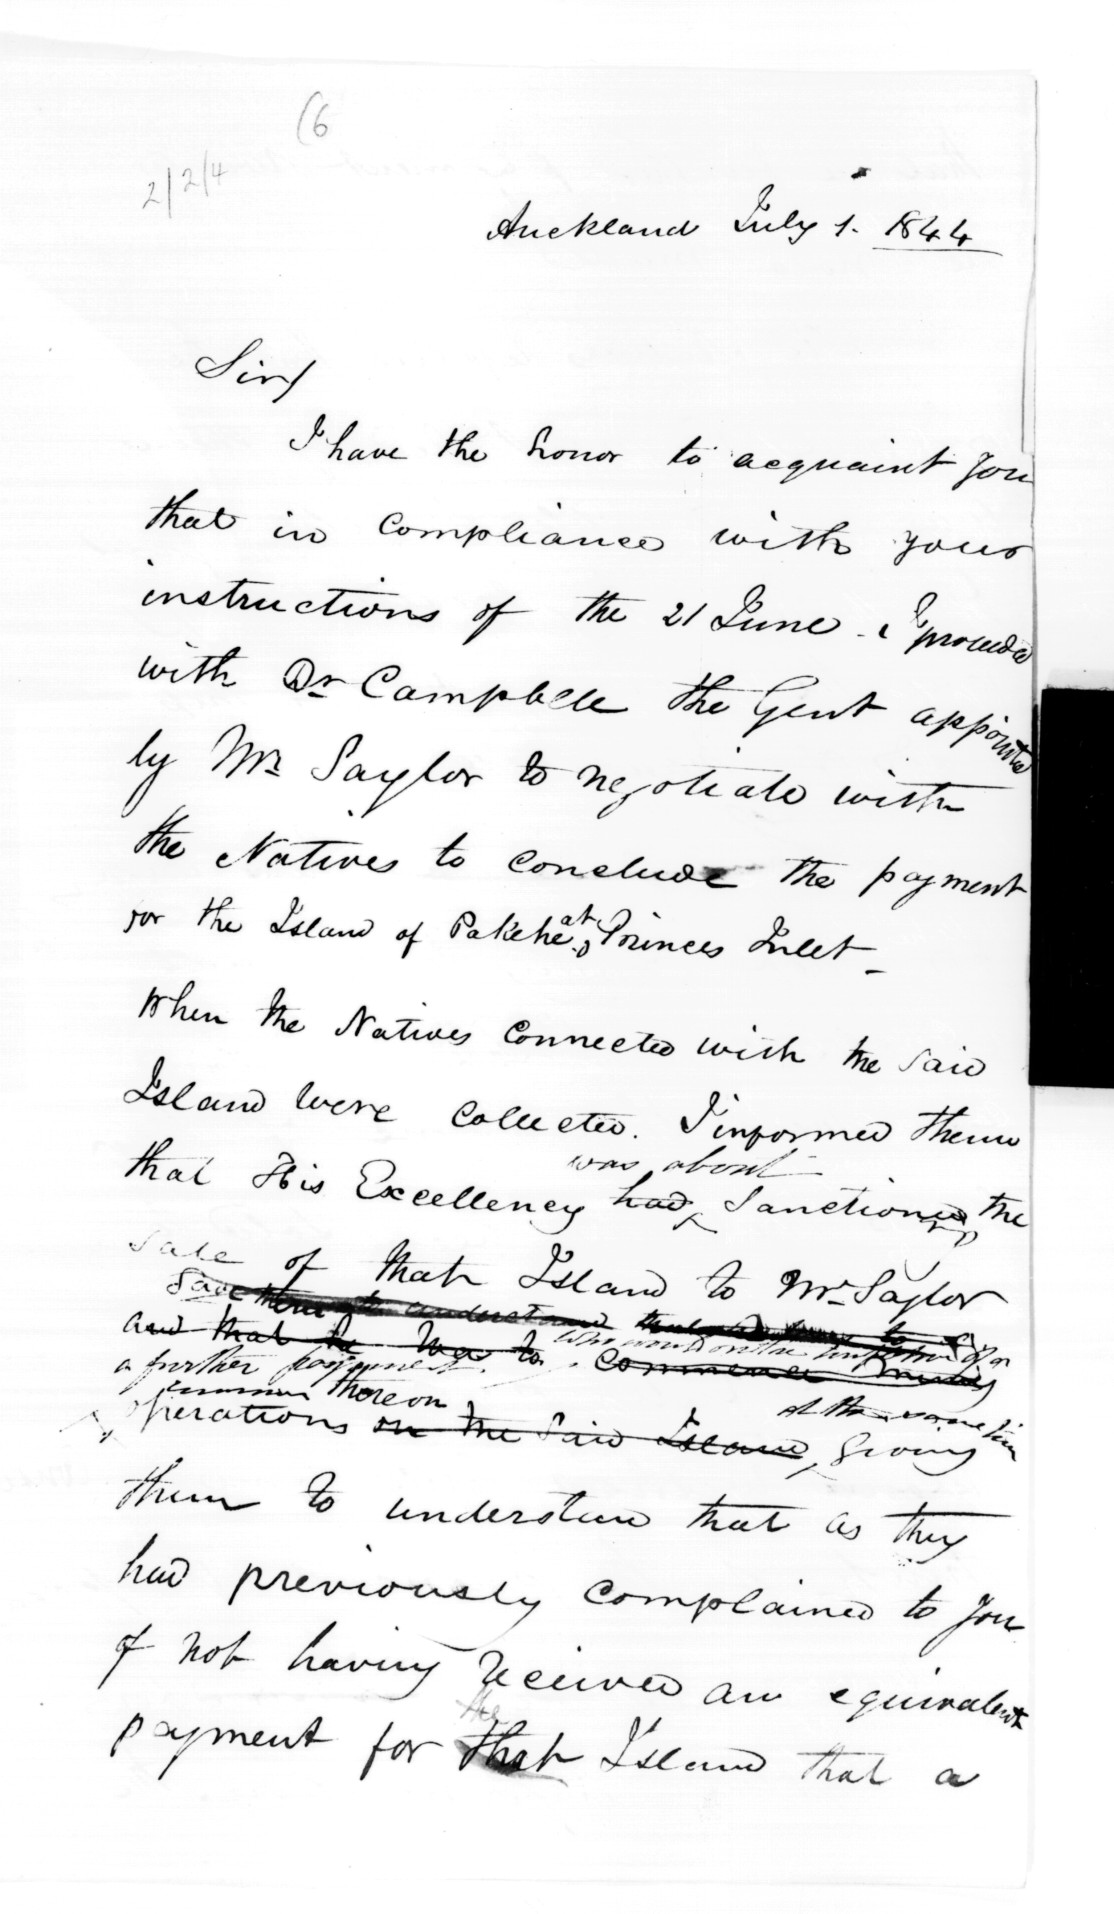 (6
2/2/4
Auckland July 1. 1844
Sir/
I have the honor to acquaint you
that in compliance with your
instructions of the 21 June - I proceeded
with Dr Campbell the Gent appointed
by Mr Taylor to negotiate with
the Natives to conclude the payment
for the Island of Pakehe at Princes Inlet -
When the Natives connected with the said
Island were collected. I informed them
was about
that His Excellency had sanctioned the
sale of that Island to Mr Taylor
Gave them to understand
who would on the
and that he was to commence mining
a further payment
thereon
at the same time
operations on the said Island, giving
them to understand that as they
had previously complained to you
of not having received an equivalent
the
payment for that Island that a